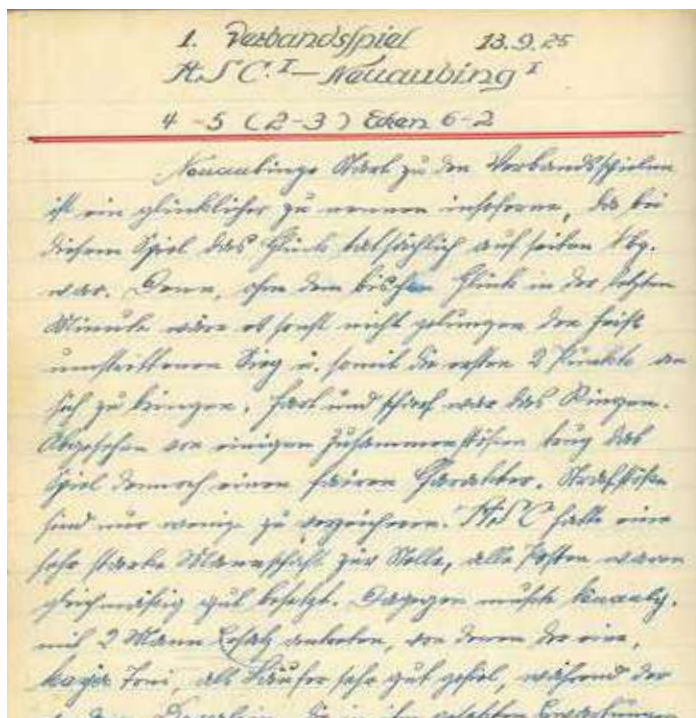 1. Verbandsspiel 13.9.25
A.S.C. I – Neuaubing I
4 - 5 (2-3) Ecken 6-2
Neuaubings Start zu den Verbandsspielen
ist ein glücklicher zu nennen insoferne, da bei
diesem Spiel das Glück tatsächlich auf seiten Nbg.
war. Denn, ohne dem bischen Glück in der letzten
Minute wäre es sonst nicht gelungen den heiß
umstrittenen Sieg u. somit die ersten 2 Punkte an
sich zu bringen. Hart und scharf war das Ringen.
Abgesehen von einigen Zusammenstößen trug das
Spiel dennoch einen fairen Charakter. Strafstöße
sind nur wenige zu verzeichnen. A.S.C. hatte eine
sehr starke Mannschaft zur Stelle, alle Posten waren
gleichmäßig gut besetzt. Dagegen mußte Neuaubg.
mit 2 Mann Ersatz antreten, von denen der eine,
Toni, als Läufer sehr gut gefiel, während der
die in ihn gesetzten Erwartungen